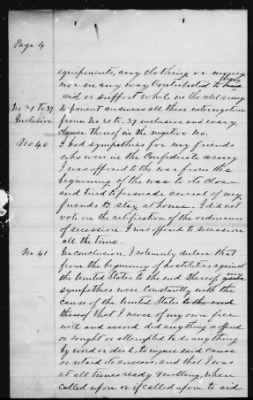 Page 4
equipments, any clothing or money
nor in any way contributed to
aid or support
to present answers all these interrogatories
No 31 to 39 from No 31 to 39 inclusive and every
Inclusive clause thereof in the negative No.
No 40 I had sympathies for my friends
who were in the Confederate army
I was opposed to the war from the
beginning of the war to its close
and tried to persuade several of my
friends to stay at home. I did not
vote on the ratification of the ordinance
of secession. I was opposed to secession
all the time.
No. 41 In conclusion, I solemnly declare that
from the beginning of hostilities against
the United States to the end thereof my
sympathies were constantly with the
cause of the United States to the end
thereof that I never of my own free
will and accord did anything or offered
or sought or attempted to do anything
by word or deed, to injure said cause
or retard its success, and that I was
at all times ready & willing, when
called upon or if called upon to aid